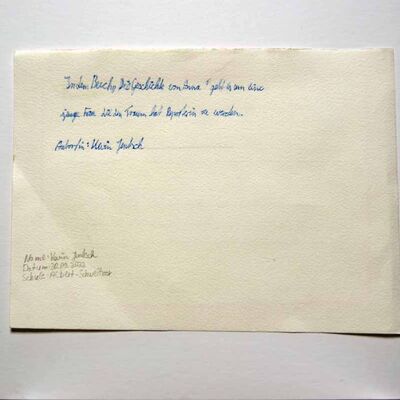 In dem Buch „Die Geschichte von Anna" geht es um eine
junge Frau die den Traum hat Reporterin zu werden.
Autor/in: Kevin Jentsch
Name: Kevin Jentsch
Datum: 30.09.2022
Schule: Albert-Schweitzer